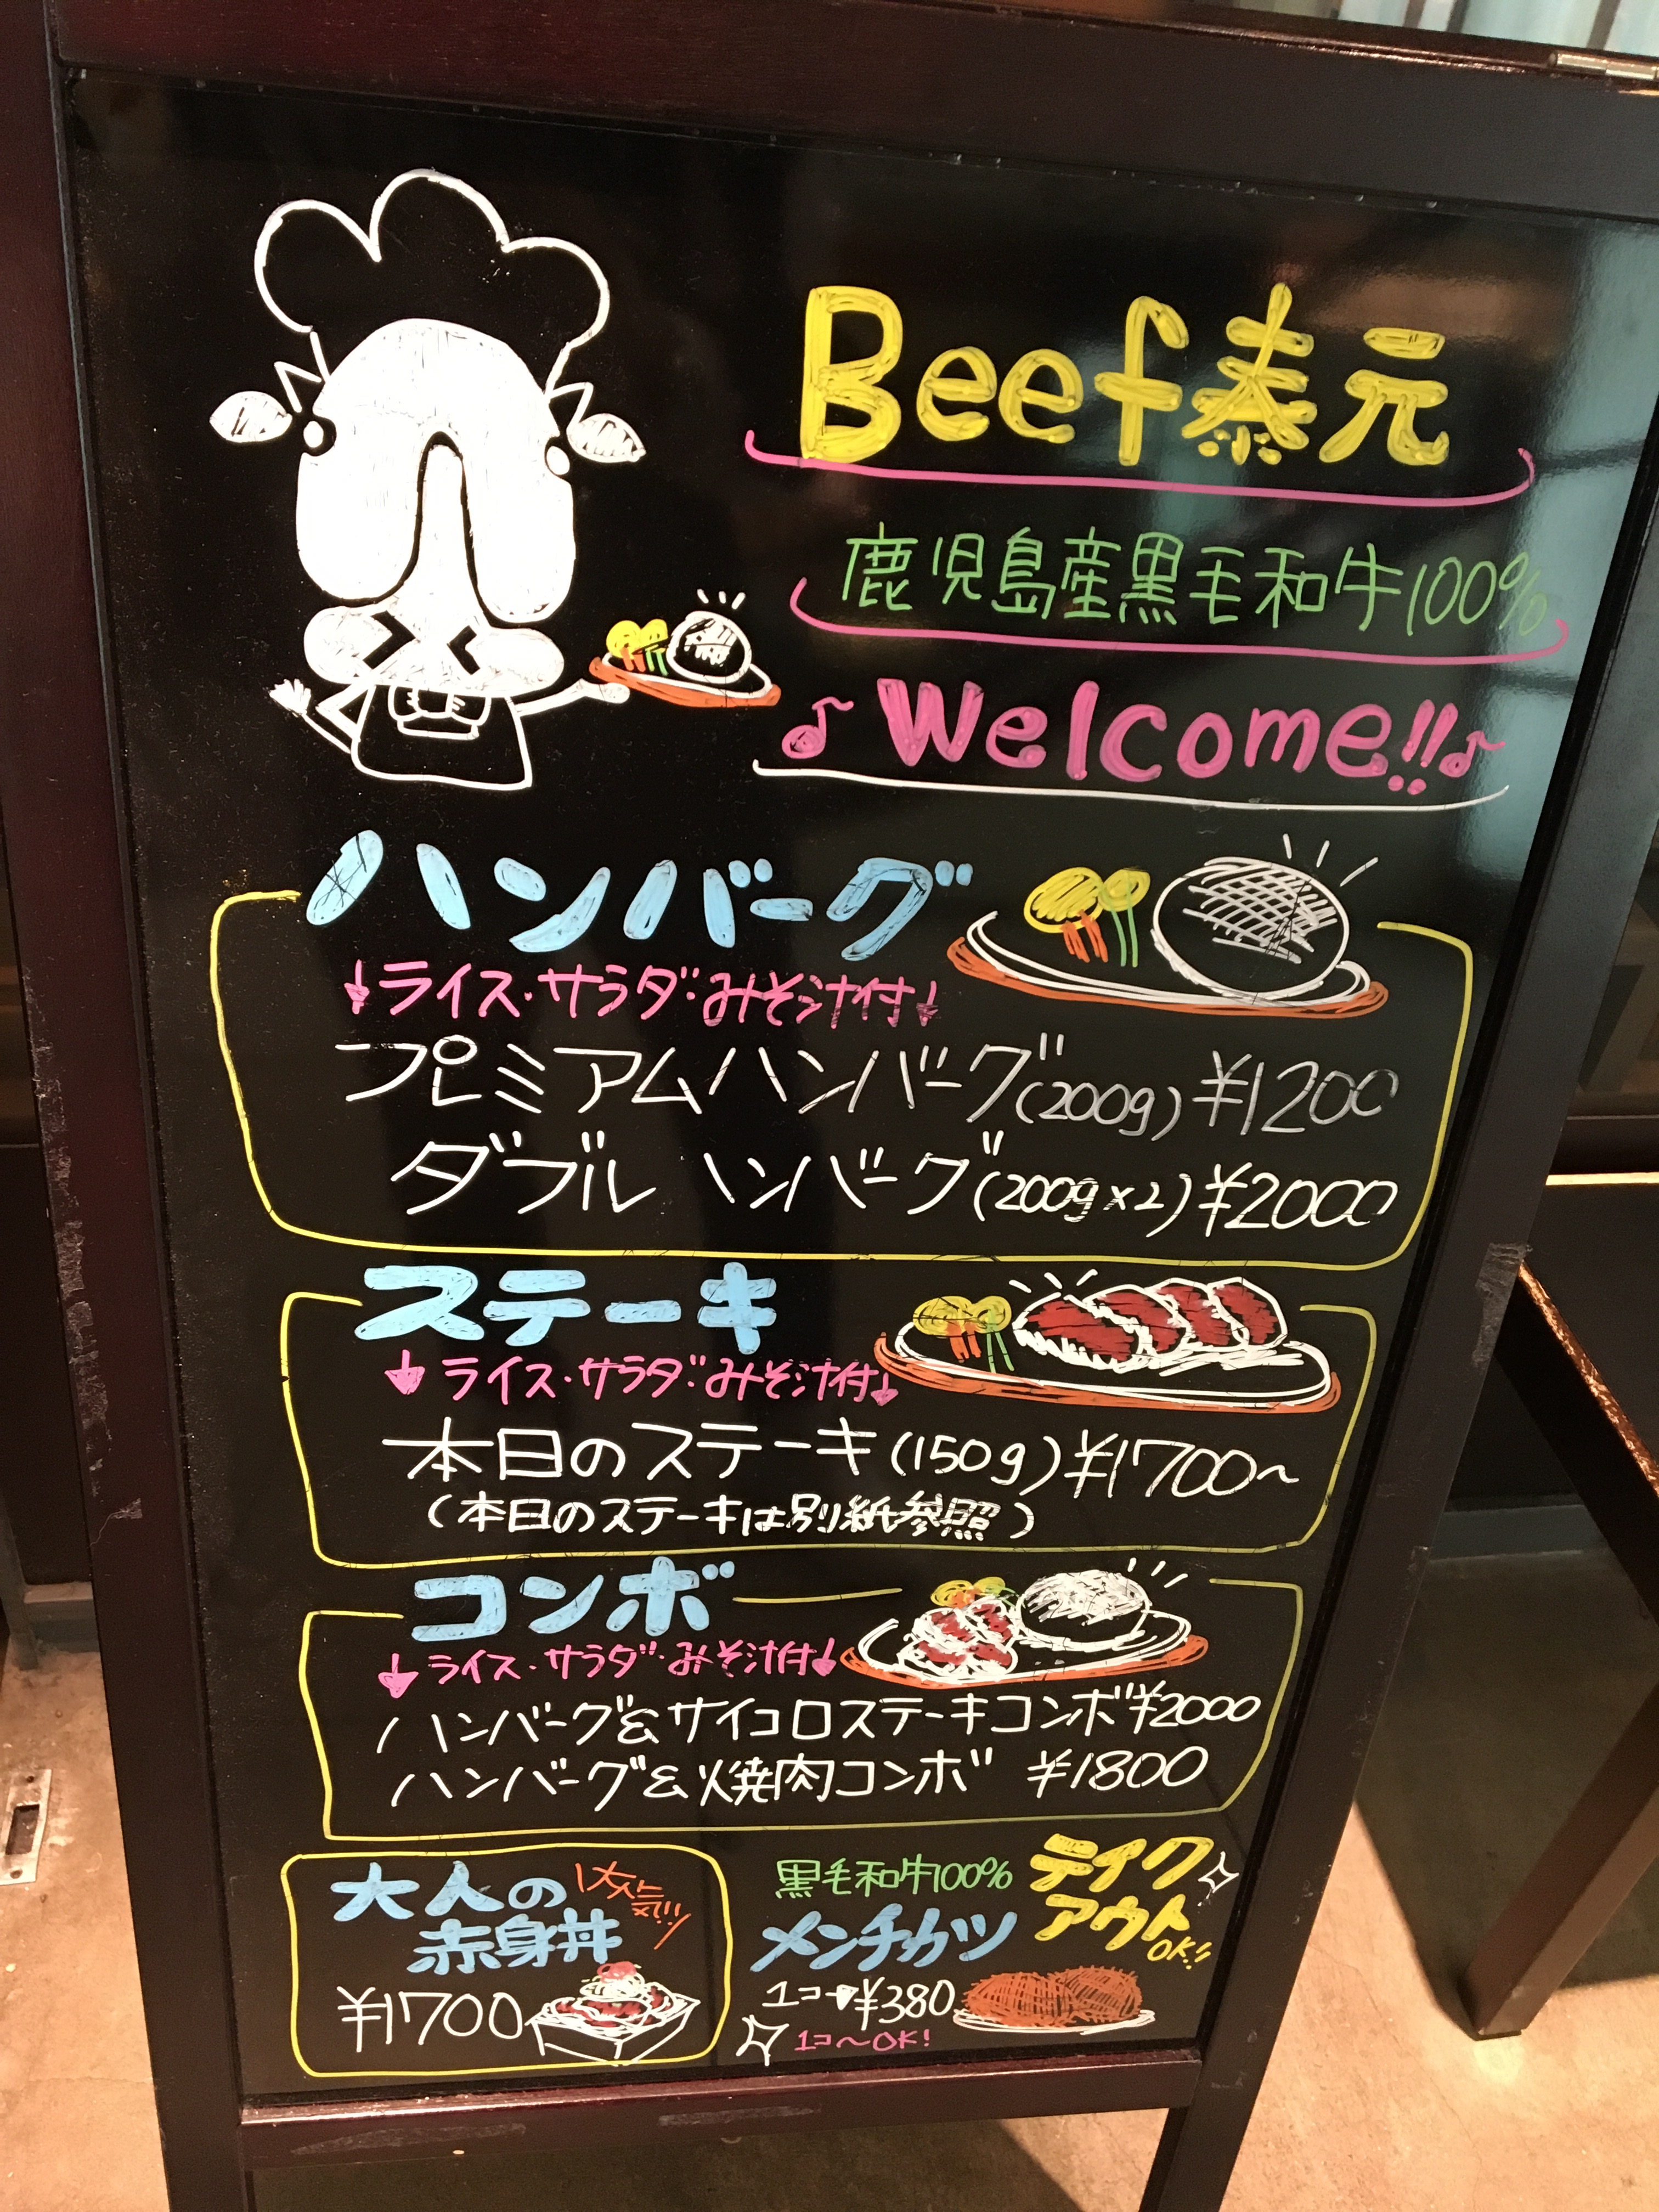 Beef泰元
鹿児島産黒毛和牛100%
♪Welcome!!♪
ハンバーグ
↓ライス・サラダ・みそ汁付↓
プレミアムハンバーグ(200g)¥1200
ダブルハンバーグ(200g×2)¥2000
ステーキ
↓ライス・サラダ・みそ汁付↓
本日のステーキ(150g)¥1700~
(本日のステーキは別紙参照)
コンボ
↓ライス・サラダ・みそ汁付↓
ハンバーグ&サイコロステーキコンボ¥2000
ハンバーグ&焼肉コンボ ¥1800
大人の
赤身丼
大人気!!!
¥1700
黒毛和牛100%
メンチカツ
テイク
アウト
OK!!
1コ→¥380
1コ~OK!